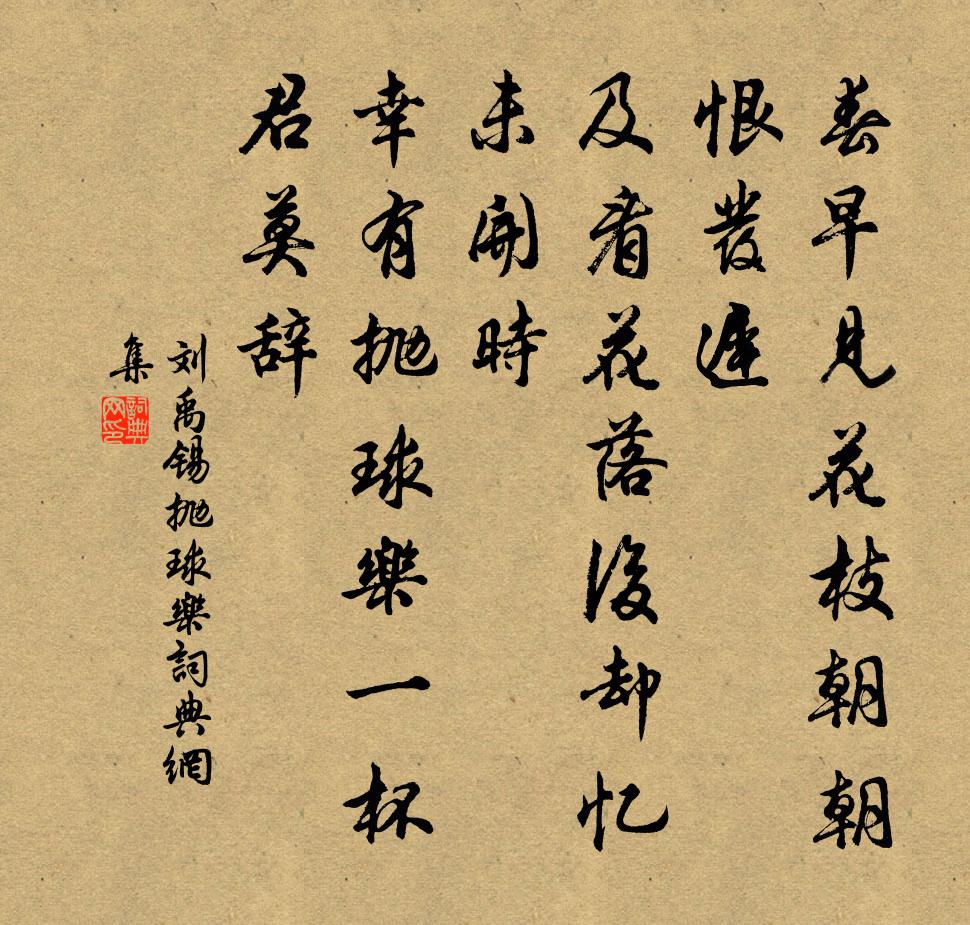 春早見花枝朝朝
恨發遲
及看花落後却忆
未開時
幸有抛球樂一杯
君莫辞
刘禹锡抛球樂詞典網
集
詞典
网印